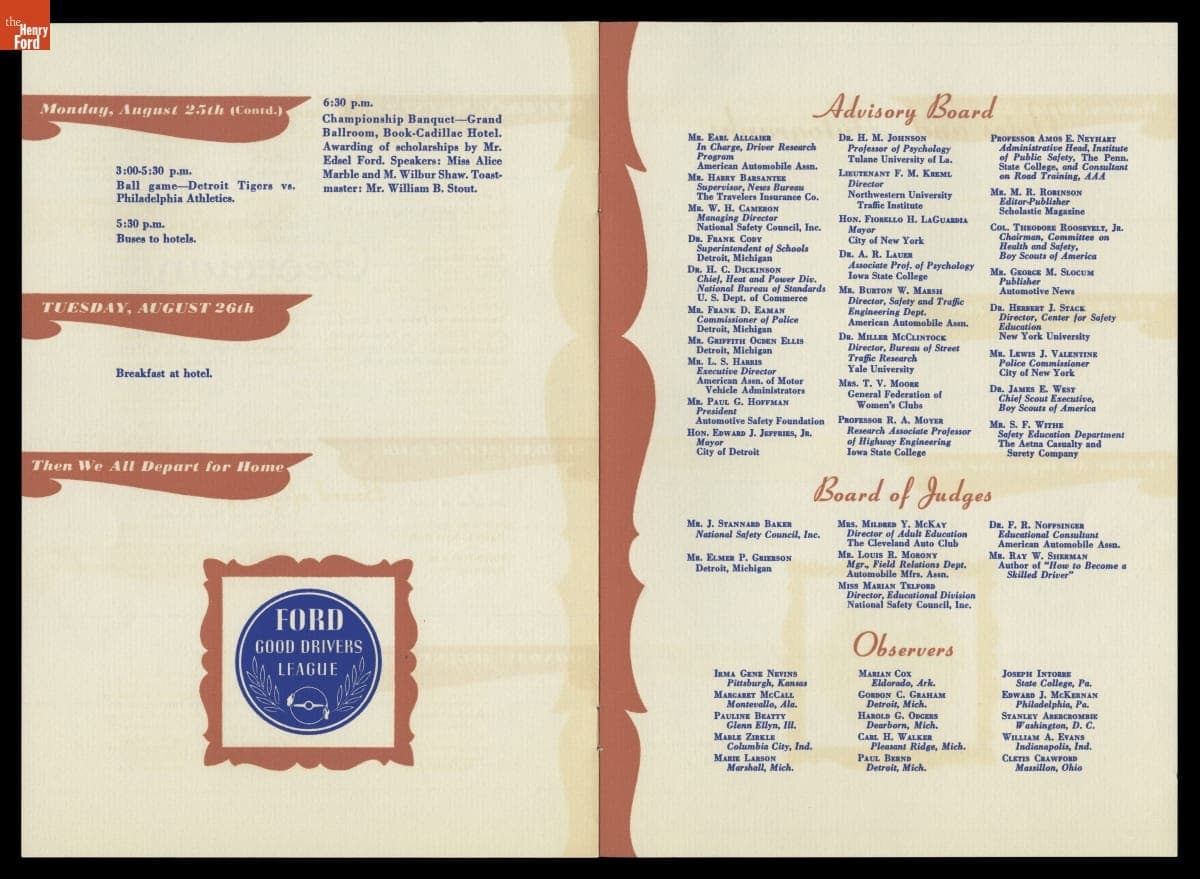 the
Henry
Ford
Monday, August 25th (Contd.)
3:00-5:30 p.m.
Ball game—Detroit Tigers vs.
Philadelphia Athletics.
5:30 p.m.
Buses to hotels.
6:30 p.m.
Championship Banquet—Grand
Ballroom, Book-Cadillac Hotel.
Awarding of scholarships by Mr.
Edsel Ford. Speakers: Miss Alice
Marble and M. Wilbur Shaw. Toast-
master: Mr. William B. Stout.
TUESDAY, AUGUST 26th
Breakfast at hotel.
Then We All Depart for Home
FORD
GOOD DRIVERS
LEAGUE
Advisory Board
Mr. Earl Allgaier
In Charge, Driver Research
Program
American Automobile Assn.
Mr. Harry Barsantee
Supervisor, News Bureau
The Travelers Insurance Co.
Mr. W. H. Cameron
Managing Director
National Safety Council, Inc.
Dr. Frank Cody
Superintendent of Schools
Detroit, Michigan
Dr. H. C. Dickinson
Chief, Heat and Power Div.
National Bureau of Standards
U. S. Dept. of Commerce
Mr. Frank D. Eaman
Commissioner of Police
Detroit, Michigan
Mr. Griffith Ogden Ellis
Detroit, Michigan
Mr. L. S. Harris
Executive Director
American Assn. of Motor
Vehicle Administrators
Mr. Paul G. Hoffman
President
Automotive Safety Foundation
Hon. Edward J. Jeffries, Jr.
Mayor
City of Detroit
Dr. H. M. Johnson
Professor of Psychology
Tulane University of La.
Lieutenant F. M. Kreml
Director
Northwestern University
Traffic Institute
Hon. Fiorello H. LaGuardia
Mayor
City of New York
Dr. A. R. Lauer
Associate Prof. of Psychology
Iowa State College
Mr. Burton W. Marsh
Director, Safety and Traffic
Engineering Dept.
American Automobile Assn.
Dr. Miller McClintock
Director, Bureau of Street
Traffic Research
Yale University
Mrs. T. V. Moore
General Federation of
Women's Clubs
Professor R. A. Moyer
Research Associate Professor
of Highway Engineering
Iowa State College
Professor Amos E. Neyhart
Administrative Head, Institute
of Public Safety, The Penn.
State College, and Consultant
on Road Training, AAA
Mr. M. R. Robinson
Editor-Publisher
Scholastic Magazine
Col. Theodore Roosevelt, Jr.
Chairman, Committee on
Health and Safety,
Boy Scouts of America
Mr. George M. Slocum
Publisher
Automotive News
Dr. Herbert J. Stack
Director, Center for Safety
Education
New York University
Mr. Lewis J. Valentine
Police Commissioner
City of New York
Dr. James E. West
Chief Scout Executive,
Boy Scouts of America
Mr. S. F. Withe
Safety Education Department
The Aetna Casualty and
Surety Company
Board of Judges
Mr. J. Stannard Baker
National Safety Council, Inc.
Mr. Elmer P. Grierson
Detroit, Michigan
Mrs. Mildred Y. McKay
Director of Adult Education
The Cleveland Auto Club
Mr. Louis R. Morony
Mgr., Field Relations Dept.
Automobile Mfrs. Assn.
Miss Marian Telford
Director, Educational Division
National Safety Council, Inc.
Dr. F. R. Noffsinger
Educational Consultant
American Automobile Assn.
Mr. Ray W. Sherman
Author of "How to Become a
Skilled Driver"
Observers
Irma Gene Nevins
Pittsburgh, Kansas
Margaret McCall
Montevallo, Ala.
Pauline Beatty
Glenn Ellyn, Ill.
Mable Zirkle
Columbia City, Ind.
Marie Larson
Marshall, Mich.
Marian Cox
Eldorado, Ark.
Gordon C. Graham
Detroit, Mich.
Harold G. Odgers
Dearborn, Mich.
Carl H. Walker
Pleasant Ridge, Mich.
Paul Bernd
Detroit, Mich.
Joseph Intorre
State College, Pa.
Edward J. McKernan
Philadelphia, Pa.
Stanley Abercrombie
Washington, D. C.
William A. Evans
Indianapolis, Ind.
Cletis Crawford
Massillon, Ohio